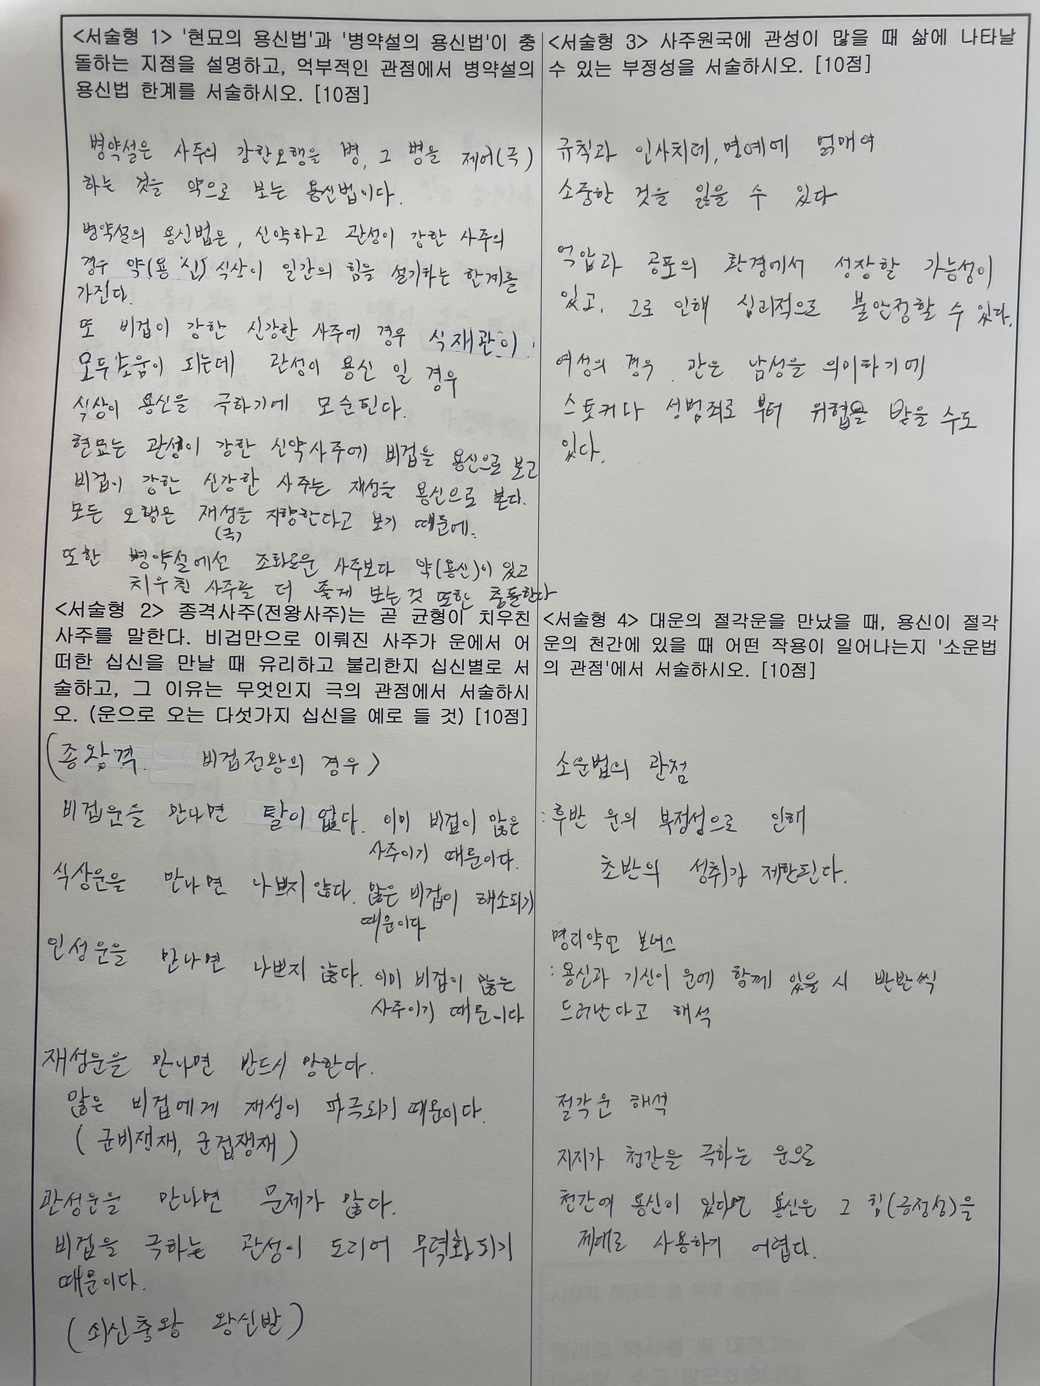 <서술형 1> '현묘의 용신법'과 '병약설의 용신법'이 충
돌하는 지점을 설명하고, 억부적인 관점에서 병약설의
용신법 한계를 서술하시오. [10점]
병약설은 사주의 강한오행은 병, 그 병을 제어(극)
하는 것을 약으로 보는 용신법이다.
병약설의 용신법은, 신약하고 관성이 강한 사주의
경우 약(용신) 식상이 일간의 힘을 설기하는 한계를
가진다.
또 비겁이 강한 신강한 사주에 경우 식재관이
모두 도움이 되는데 관성이 용신 일 경우
식상이 용신을 극하기에 모순된다.
현묘는 관성이 강한 신약사주에 비겁을 용신으로 보고
비겁이 강한 신강한 사주는 재성을 용신으로 본다.
모든 오행은 재성을 지향한다고 보기 때문에.
(극)
또한 병약설에선 조화로운 사주보다 약(용신)이 있고
치우친 사주를 더 좋게 보는 것 또한 충돌한다
<서술형 2> 종격사주(전왕사주)는 곧 균형이 치우친
사주를 말한다. 비겁만으로 이뤄진 사주가 운에서 어
떠한 십신을 만날 때 유리하고 불리한지 십신별로 서
술하고, 그 이유는 무엇인지 극의 관점에서 서술하시
오. (운으로 오는 다섯가지 십신을 예로 들 것) [10점]
(종왕격 비겁전왕의 경우)
비겁운을 만나면 탈이 없다. 이미 비겁이 많은
사주이기 때문이다.
식상운을 만나면 나쁘지 않다. 많은 비겁이 해소되기
때문이다
인성운을 만나면 나쁘지 않다. 이미 비겁이 많은
사주이기 때문이다
재성운을 만나면 반드시 망한다.
많은 비겁에게 재성이 파극되기 때문이다.
(군비쟁재, 군겁쟁재)
관성운을 만나면 문제가 많다.
비겁을 극하는 관성이 도리어 무력화되기
때문이다.
(쇠신충왕 왕신발)
<서술형 3> 사주원국에 관성이 많을 때 삶에 나타날
수 있는 부정성을 서술하시오. [10점]
규칙과 인사치레, 명예에 얽매여
소중한 것을 잃을 수 있다
억압과 공포의 환경에서 성장할 가능성이
있고, 그로 인해 심리적으로 불안정할 수 있다.
여성의 경우 관은 남성을 의미하기에
스토커나 성범죄로 부터 위협을 받을 수도
있다.
<서술형 4> 대운의 절각운을 만났을 때, 용신이 절각
운의 천간에 있을 때 어떤 작용이 일어나는지 '소운법
의 관점'에서 서술하시오. [10점]
소운법의 관점
: 후반 운의 부정성으로 인해
초반의 성취가 제한된다.
명리약언 보너스
: 용신과 기신이 운에 함께 있을 시 반반씩
드러난다고 해석
절각운 해석
지지가 천간을 극하는 운으로
천간에 용신이 있다면 용신은 그 힘(긍정성)을
제대로 사용하기 어렵다.